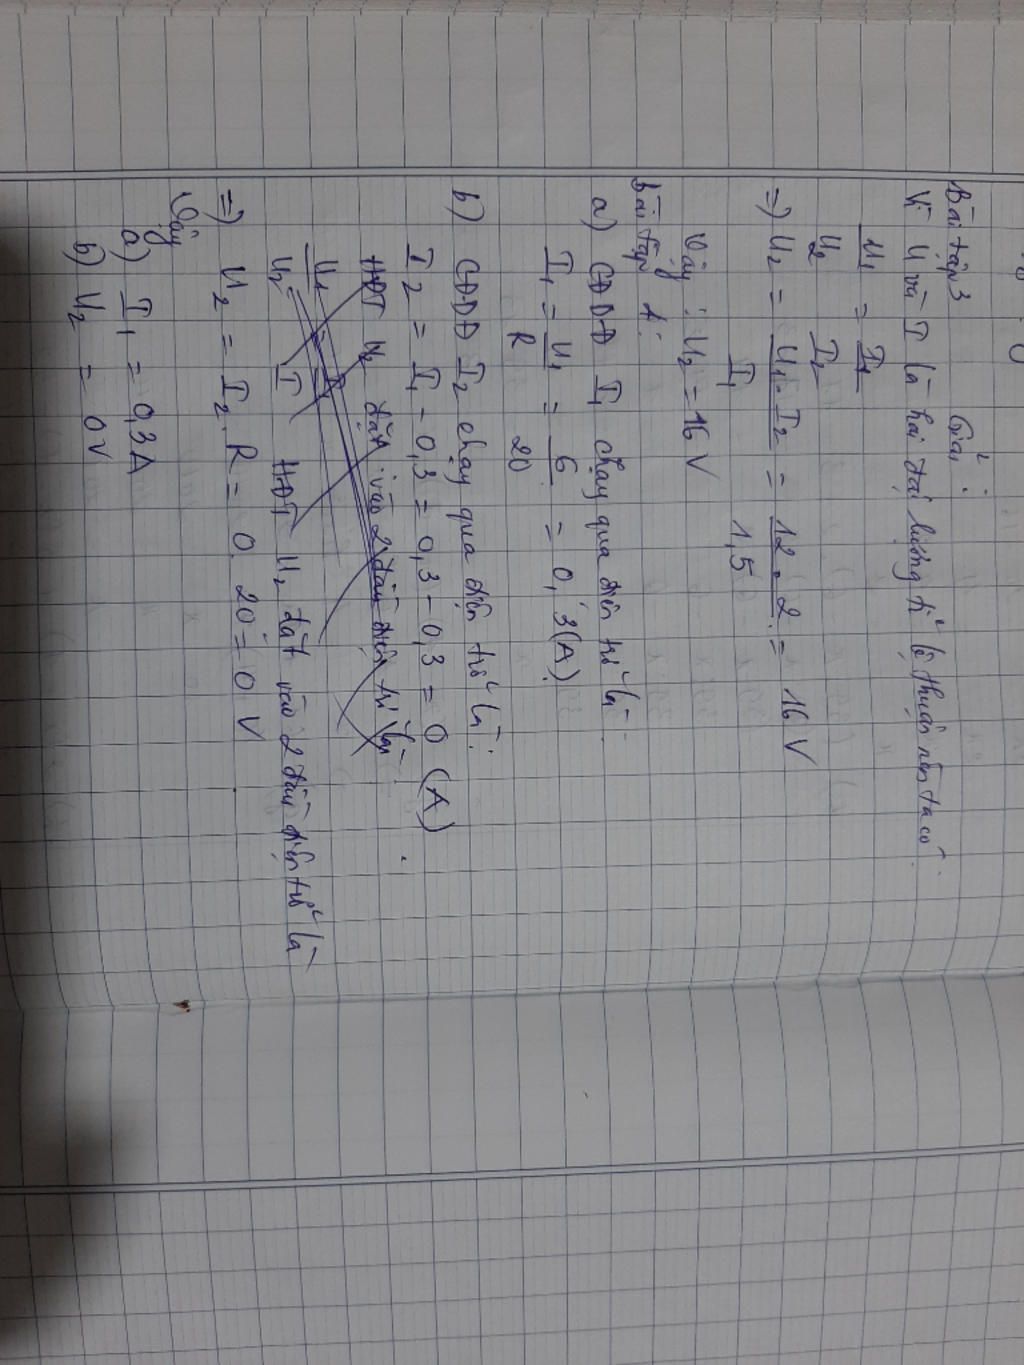 Bài tập 3 Giải:
Vì U và I là hai đại lượng tỉ lệ thuận nên ta có:
U₁/U₂ = I₁/I₂
=) U₂ = U₁.I₂/I₁ = 12.2/1,5 = 16 V
Vậy : U₂ = 16 V
bài tập 4:
a) CĐDĐ I₁ chạy qua điện trở là:
I₁ = U₁/R = 6/20 = 0,3(A)
b) CĐDĐ I₂ chạy qua điện trở là:
I₂ = I₁ - 0,3 = 0,3 - 0,3 = 0 (A)
HĐT U₂ đặt vào 2 đầu điện trở là:
U₁/U₂ = I
HĐT U₂ đặt vào 2 đầu điện trở là
=) U₂ = I₂.R = 0.20 = 0 V
Vậy
a) I₁ = 0,3A
b) U₂ = 0V